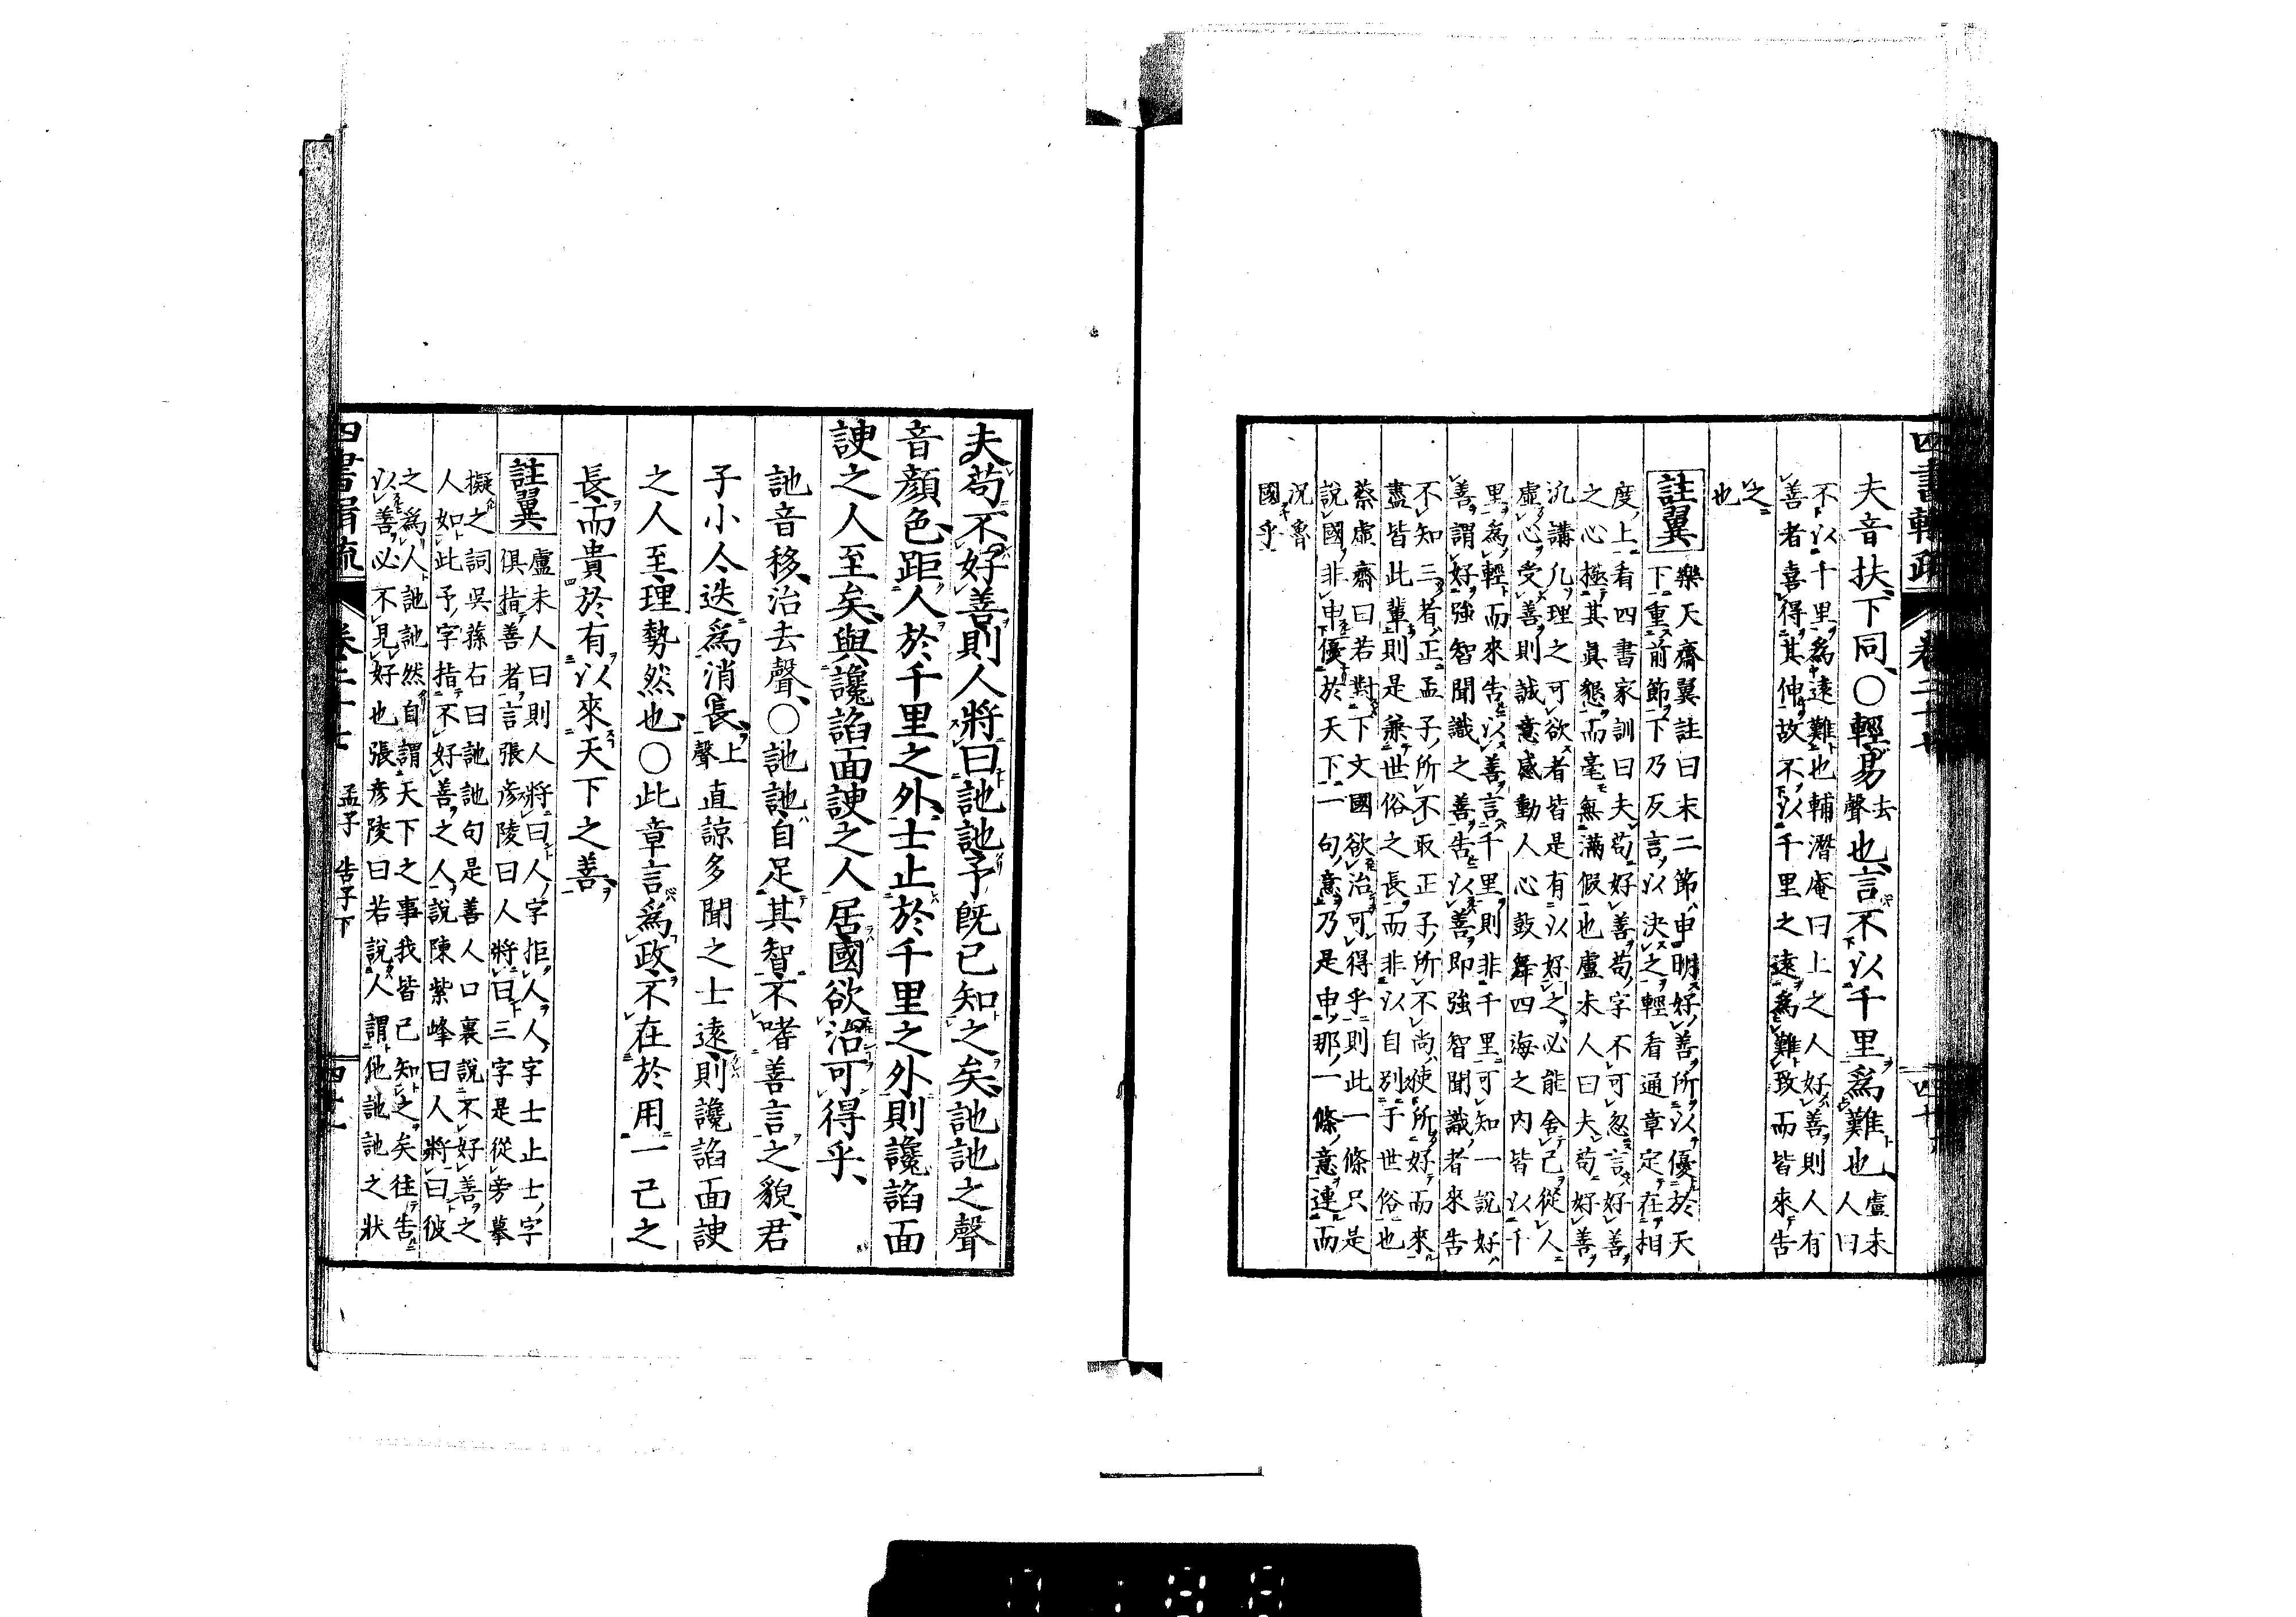 夫音扶下同○輕易去聲也言不以千里爲難也盧未人曰
不以千里爲遠難也輔潛庵曰上之人好善則人有
善者喜得其伸故不以千里之遠爲難致而皆來告
之
也
註翼
樂天齋翼註曰末二節申明好善所以優於天
下重前節下乃反言以決之輕看通章定在相
度上看四書家訓曰夫苟好善苟字不可忽言好善
之心極其眞懇而毫無滿假也盧未人曰夫苟好善
沉講凡理之可欲者皆是有以好之必能舍己從人
虛心受善則誠意感動人心鼓舞四海之內皆以千
里爲輕而來告以善言千里則非千里可知一說好
善謂好強智聞識之善告以善即強智聞識者來告
不知三者正孟子所不取正子所不尚使所好而來
盡皆此輩則是兼世俗之長而非以自別于世俗也
蔡虛齋曰若對下文國欲治可得乎則此一條只是
說國非申優於天下一句意乃是申那一條意連而
況魯
國乎
夫苟不好善則人將曰訑訑予既已知之矣訑訑之聲
音顏色距人於千里之外士止於千里之外則讒諂面
諛之人至矣與讒諂面諛之人居國欲治可得乎
訑音移治去聲○訑訑自足其智不嗜善言之貌君
子小人迭爲消長上聲直諒多聞之士遠則讒諂面諛
之人至理勢然也○此章言爲政不在於用一己之
長而貴於有以來天下之善
註翼
盧未人曰則人將曰人字拒人人字士止士字
俱指善者言張彥陵曰人將曰三字是從旁摹
擬之詞吳蓀右曰訑訑句是善人口裏說不好善之
人如此予字指不好善之人說陳紫峰曰人將曰彼
之爲人訑訑然自謂天下之事我皆已知之矣往告
以善必不見好也張彥陵曰若說人謂他訑訑之狀
孟子 告子下